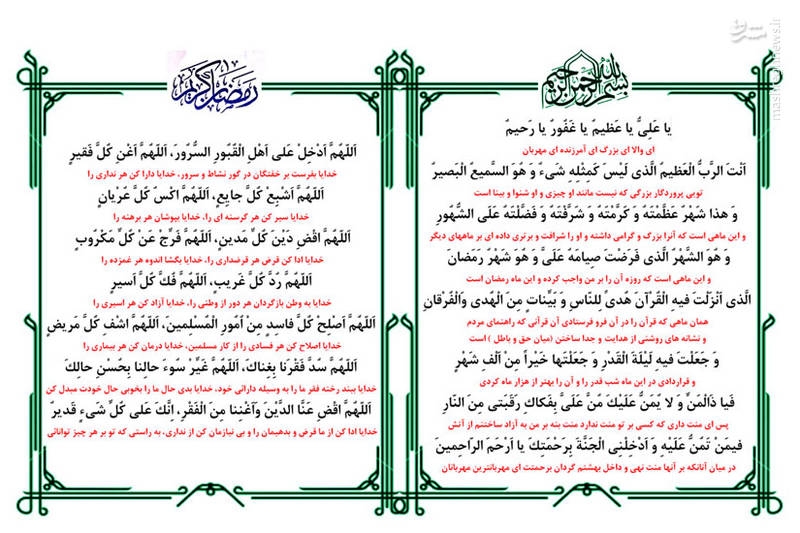 بسم الله الرحمن الرحیم
یا عَلِیُّ یا عَظیمُ یا غَفُورُ یا رَحیمُ
ای والا ای بزرگ ای آمرزنده ای مهربان
اَنْتَ الرَّبُّ الْعَظیمُ الَّذی لَیْسَ کَمِثْلِهِ شَیءٌ وَ هُوَ السَّمیعُ الْبَصیرُ
تویی پروردگار بزرگی که نیست مانند او چیزی و او شنوا و بینا است
وَ هذا شَهْرٌ عَظَّمْتَهُ وَ کَرَّمْتَهُ وَ شَرَّفْتَهُ وَ فَضَّلْتَهُ عَلَی الشُّهُورِ
و این ماهی است که آنرا بزرگ و گرامی داشته و او را شرافت و برتری داده ای بر ماههای دیگر
وَ هُوَ الشَّهْرُ الَّذی فَرَضْتَ صِیامَهُ عَلَیَّ وَ هُوَ شَهْرُ رَمَضانَ
و این ماهی است که روزه آن را بر من واجب کرده و این ماه رمضان است
الَّذی اَنْزَلْتَ فیهِ الْقُرْآنَ هُدیً لِلنّاسِ وَ بَیِّناتٍ مِنَ الْهُدی وَالْفُرْقانِ
همان ماهی که قرآن را در آن فرو فرستادی آن قرآنی که راهنمای مردم
و نشانه های روشنی از هدایت و جدا ساختن (میان حق و باطل ) است
وَ جَعَلْتَ فیهِ لَیْلَةَ الْقَدْرِ وَ جَعَلْتَها خَیْراً مِنْ اَلْفِ شَهْرٍ
و قراردادی در این ماه شب قدر را و آن را بهتر از هزار ماه کردی
فَیا ذَالْمَنِّ وَ لا یُمَنُّ عَلَیْکَ مُنَّ عَلَیَّ بِفَکاکِ رَقَبَتی مِنَ النّارِ
پس ای منت داری که کسی بر تو منت ندارد منت بنه بر من به آزاد ساختنم از آتش
فیمَنْ تَمُنُّ عَلَیْهِ وَ اَدْخِلْنِی الْجَنَّةَ بِرَحْمَتِکَ یا اَرْحَمَ الرّاحِمینَ
در میان آنانکه بر آنها منت نهی و داخل بهشتم گردان برحمتت ای مهربانترین مهربانان
رمضان کریم
اَللّهُمَّ اَدْخِلْ عَلی اَهْلِ الْقُبُورِ السُّرُورَ، اَللّهُمَّ اَغْنِ کُلَّ فَقیرٍ
خدایا بفرست بر خفتگان در گور نشاط و سرور، خدایا دارا کن هر نداری را
اَللّهُمَّ اَشْبِعْ کُلَّ جایِعٍ، اَللّهُمَّ اکْسُ کُلَّ عُرْیانٍ
خدایا سیر کن هر گرسنه ای را، خدایا بپوشان هر برهنه را
اَللّهُمَّ اقْضِ دَیْنَ کُلِّ مَدینٍ، اَللّهُمَّ فَرِّجْ عَنْ کُلِّ مَکْرُوبٍ
خدایا ادا کن قرض هر قرضداری را، خدایا بگشا اندوه هر غمزده را
اَللّهُمَّ رُدَّ کُلَّ غَریبٍ، اَللّهُمَّ فُکَّ کُلَّ اَسیرٍ
خدایا به وطن بازگردان هر دور از وطنی را، خدایا آزاد کن هر اسیری را
اَللّهُمَّ اَصْلِحْ کُلَّ فاسِدٍ مِنْ اُمُورِ الْمُسْلِمینَ، اَللّهُمَّ اشْفِ کُلَّ مَریضٍ
خدایا اصلاح کن هر فسادی را از کار مسلمین، خدایا درمان کن هر بیماری را
اَللّهُمَّ سُدَّ فَقْرَنا بِغِناکَ، اَللّهُمَّ غَیِّرْ سُوءَ حالِنا بِحُسْنِ حالِکَ
خدایا ببند رخنه فقر ما را به وسیله دارائی خود، خدایا بدی حال ما را بخوبی حال خودت مبدل کن
اَللّهُمَّ اقْضِ عَنَّا الدَّیْنَ وَاَغْنِنا مِنَ الْفَقْرِ، اِنَّکَ عَلی کُلِّ شَیءٍ قَدیرٌ
خدایا ادا کن از ما قرض و بدهیمان را و بی نیازمان کن از نداری، به راستی که تو بر هر چیز توانائی